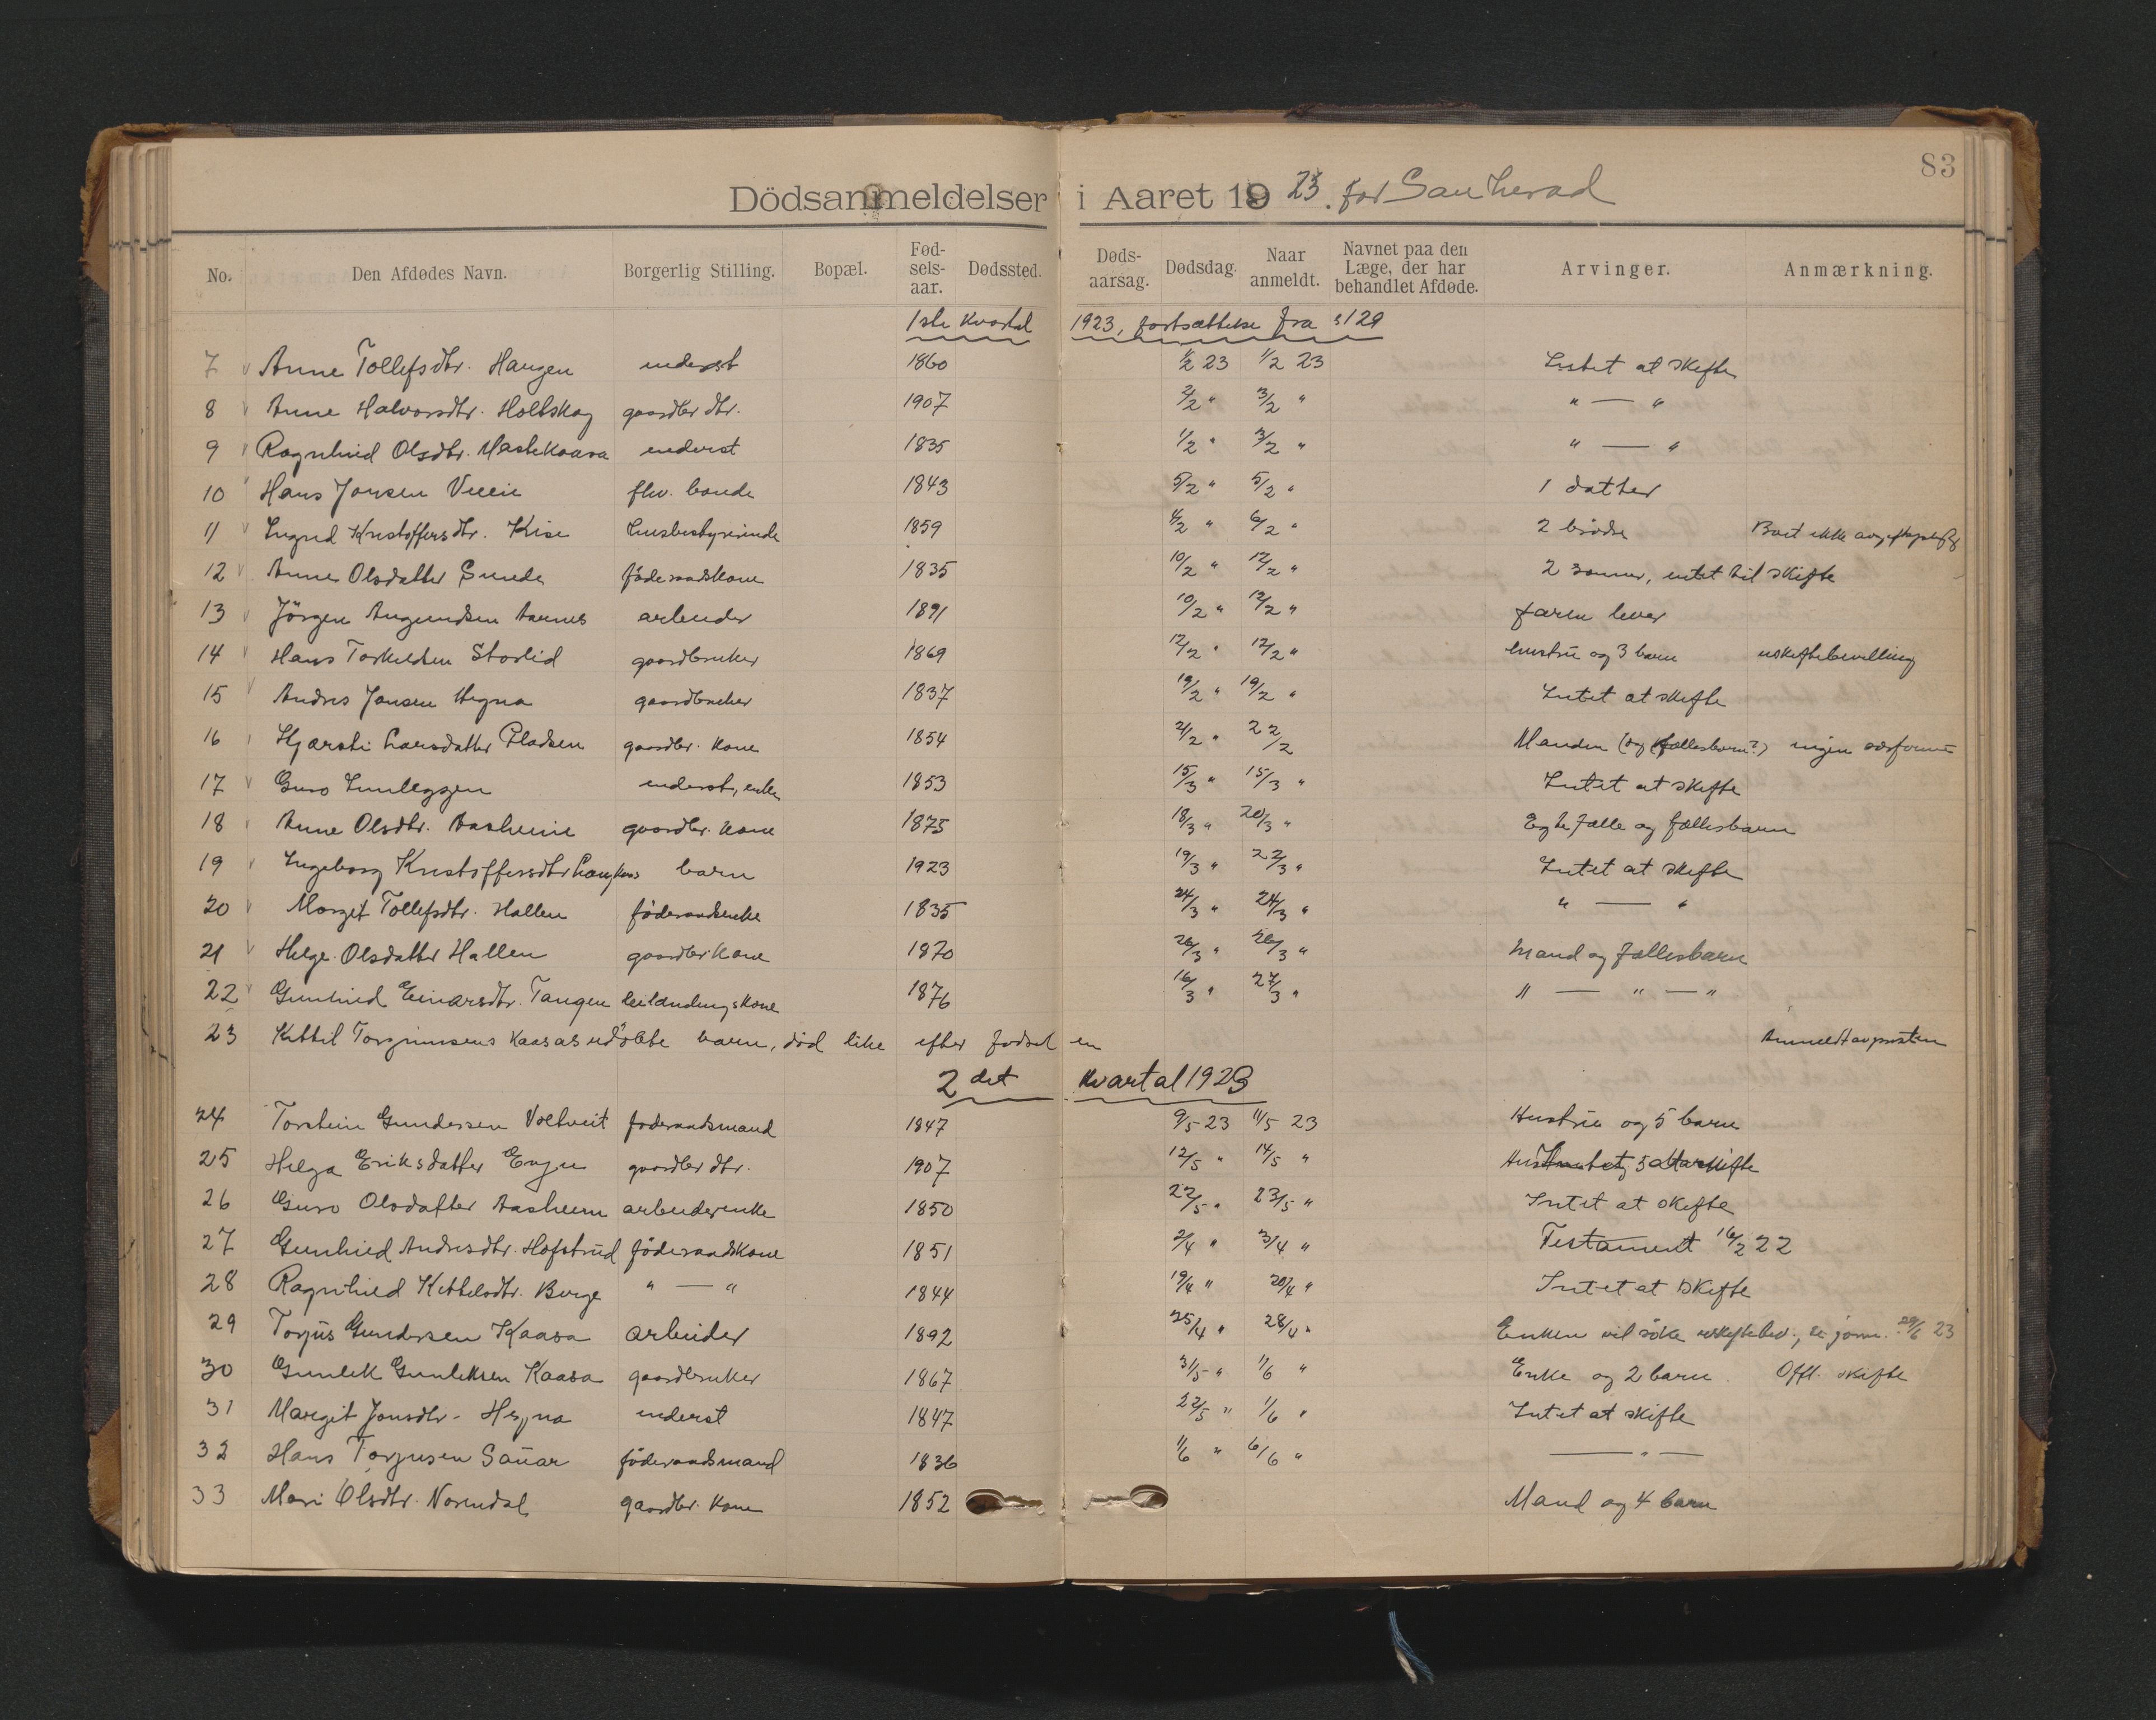 83
Dödsanmeldelser i Aaret 1923. for Sauherad
No. Den Afdødes Navn. Borgerlig Stilling. Bopæl. Fød-sels-aar. Dødssted. Døds-aarsag. Dødsdag. Naar anmeldt. Navnet paa den Læge, der har behandlet Afdøde. Arvinger. Anmærkning.
1ste Kvartal 1923, fortsættelse fra s 129
7 Anne Tollefsdtr. Haugen inderst 1860 1/2 23 1/2 23 Intet at skifte
8 Anne Halvorsdtr. Holtskog gaardbr dtr. 1907 2/2 " 3/2 " " — "
9 Ragnhild Olsdtr. Mastekaasa inderst 1835 1/2 " 3/2 " " — "
10 Hans Jonsen flv. bonde 1843 5/2 " 5/2 " 1 datter
11 Ingrid Kristoffersdtr. Kise husbestyrerinde 1859 4/2 " 6/2 " 2 brödre Boet ikke
12 Anne Olsdatter Sunde föderaadskone 1835 10/2 " 12/2 " 2 sönner, intet til skifte
13 Jörgen Aagundsen Aarnes arbeider 1891 10/2 " 12/2 " faren lever
14 Hans Torkildsen Storlid gaardbruker 1869 12/2 " 12/2 " hustru og 3 barn uskiftebevilling
15 Andres Jonsen Hegna gaardbruker 1837 19/2 " 19/2 " Intet at skifte
16 Kjersti Larsdatter Pladsen gaardbr. kone 1854 21/2 " 22/2 Manden (og fællesbarn?) ingen
17 Guro Lunleggen inderst, enke 1853 15/3 " 15/3 " Intet at skifte
18 Anne Olsdtr. Aasheim gaardbr. kone 1875 18/3 " 20/3 " Egtefælle og fællesbarn
19 Ingeborg Kristoffersdtr barn 1923 19/3 " 22/3 " Intet at skifte
20 Marget Tollefsdtr. Hallen föderaadsenke 1835 24/3 " 24/3 " " — "
21 Helge Olsdatter Hallen gaardbr kone 1870 26/3 " 26/3 " Mand og fællesbarn
22 Gunhild Einarsdtr. Tangen leilændingskone 1876 16/3 " 27/3 " " — " — "
23 Kittil Torgrimsens Kaasas udöbte barn, död like efter födselen Anmeldt av presten
2det Kvartal 1923
24 Torstein Gundersen Voltveit föderaadsmand 1847 9/5 23 11/5 23 Hustru og 5 barn
25 Helga Eriksdatter Evju gaardbr dtr. 1907 12/5 " 14/5 " Intet at skifte
26 Guro Olsdatter Aasheim arbeiderenke 1850 22/5 " 23/5 " Intet at skifte
27 Gunhild Andresdtr. Hofstrud föderaadskone 1851 2/4 " 3/4 " Testament 16/2 22
28 Ragnhild Kittelsdtr. Borge " — " 1844 19/4 " 20/4 " Intet at skifte
29 Torjus Gundersen Kaasa arbeider 1892 25/4 " 28/4 " Enken vil söke uskiftebev., se journ. 29/6 23
30 Gunlek Gunleksen Kaasa gaardbruker 1867 31/5 " 1/6 " Enke og 2 barn. Offl. skifte
31 Margit Jonsdtr. Hegna inderst 1847 22/5 " 1/6 " Intet at skifte
32 Hans Torjusen Sauar föderaadsmand 1836 1/6 " 6/6 " — " —
33 Mari Olsdtr. Norendal gaardbr. kone 1852 Mand og 4 barn